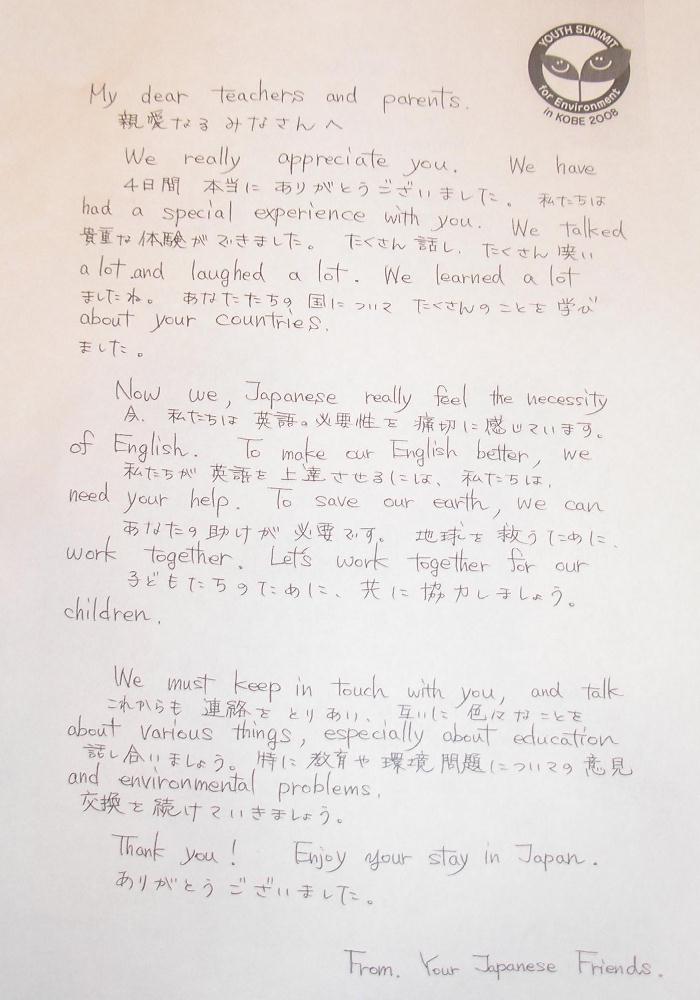 YOUTH SUMMIT
for Environment
in KOBE 2008
My dear teachers and parents.
親愛なる みなさんへ
We really appreciate you. We have
4日間 本当に ありがとうございました。 私たちは
had a special experience with you. We talked
貴重な体験ができました。 たくさん話し、たくさん笑い
a lot.and laughed a lot. We learned a lot
ましたね。 あなたたちの 国について たくさんのことを学び
about your countries.
ました。
Now we, Japanese really feel the necessity
今、私たちは 英語の必要性を 痛切に感じています。
of English. To make our English better, we
私たちが 英語を 上達させるには、私たちは、
need your help. To save our earth, we can
あなたの助けが 必要です。 地球を救うために、
work together. Let's work together for our
子どもたちのために、共に協力しましょう。
children.
We must keep in touch with you, and talk
これからも 連絡を とりあい、互いに 色々なことを
about various things, especially about education
話し合いましょう。特に教育や環境問題についての意見
and environmental problems.
交換を続けていきましょう。
Thank you! Enjoy your stay in Japan.
ありがとうございました。
From. Your Japanese Friends.